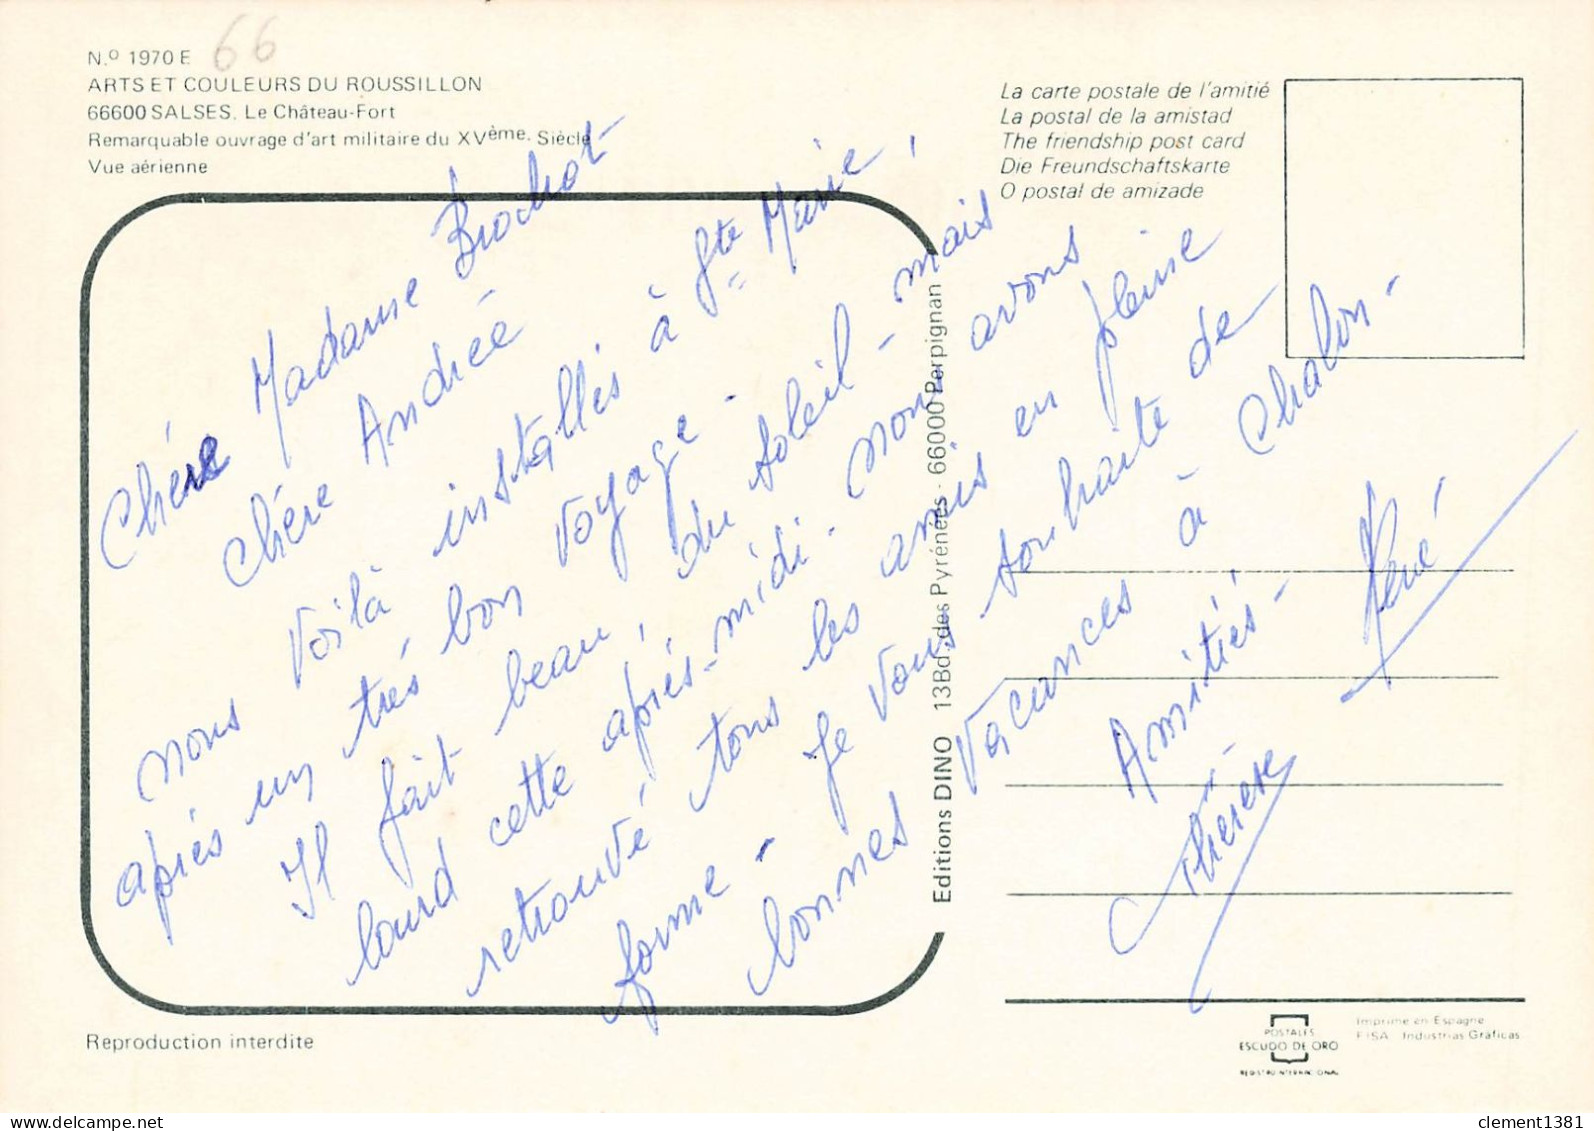 N.º 1970 E
66
ARTS ET COULEURS DU ROUSSILLON
66600 SALSES. Le Château-Fort
Remarquable ouvrage d'art militaire du XVème. Siècle
Vue aérienne
La carte postale de l'amitié
La postal de la amistad
The friendship post card
Die Freundschaftskarte
O postal de amizade
Chère Madame Brochot
Chère Andrée
nous voilà installés à Ste Marie,
après un très bon voyage -
Il fait beau, du soleil - mais
lourd cette après-midi - Nous avons
retrouvé tous les amis en pleine
forme - Je vous souhaite de
bonnes vacances à Chalon -
Amitiés - René
Thérèse
Editions DINO 13 Bd. des Pyrénées - 66000 Perpignan
Reproduction interdite
POSTALES
ESCUDO DE ORO
REGISTRO INTERNACIONAL
Imprime en Espagne
FISA Industrias Gráficas
clement1381